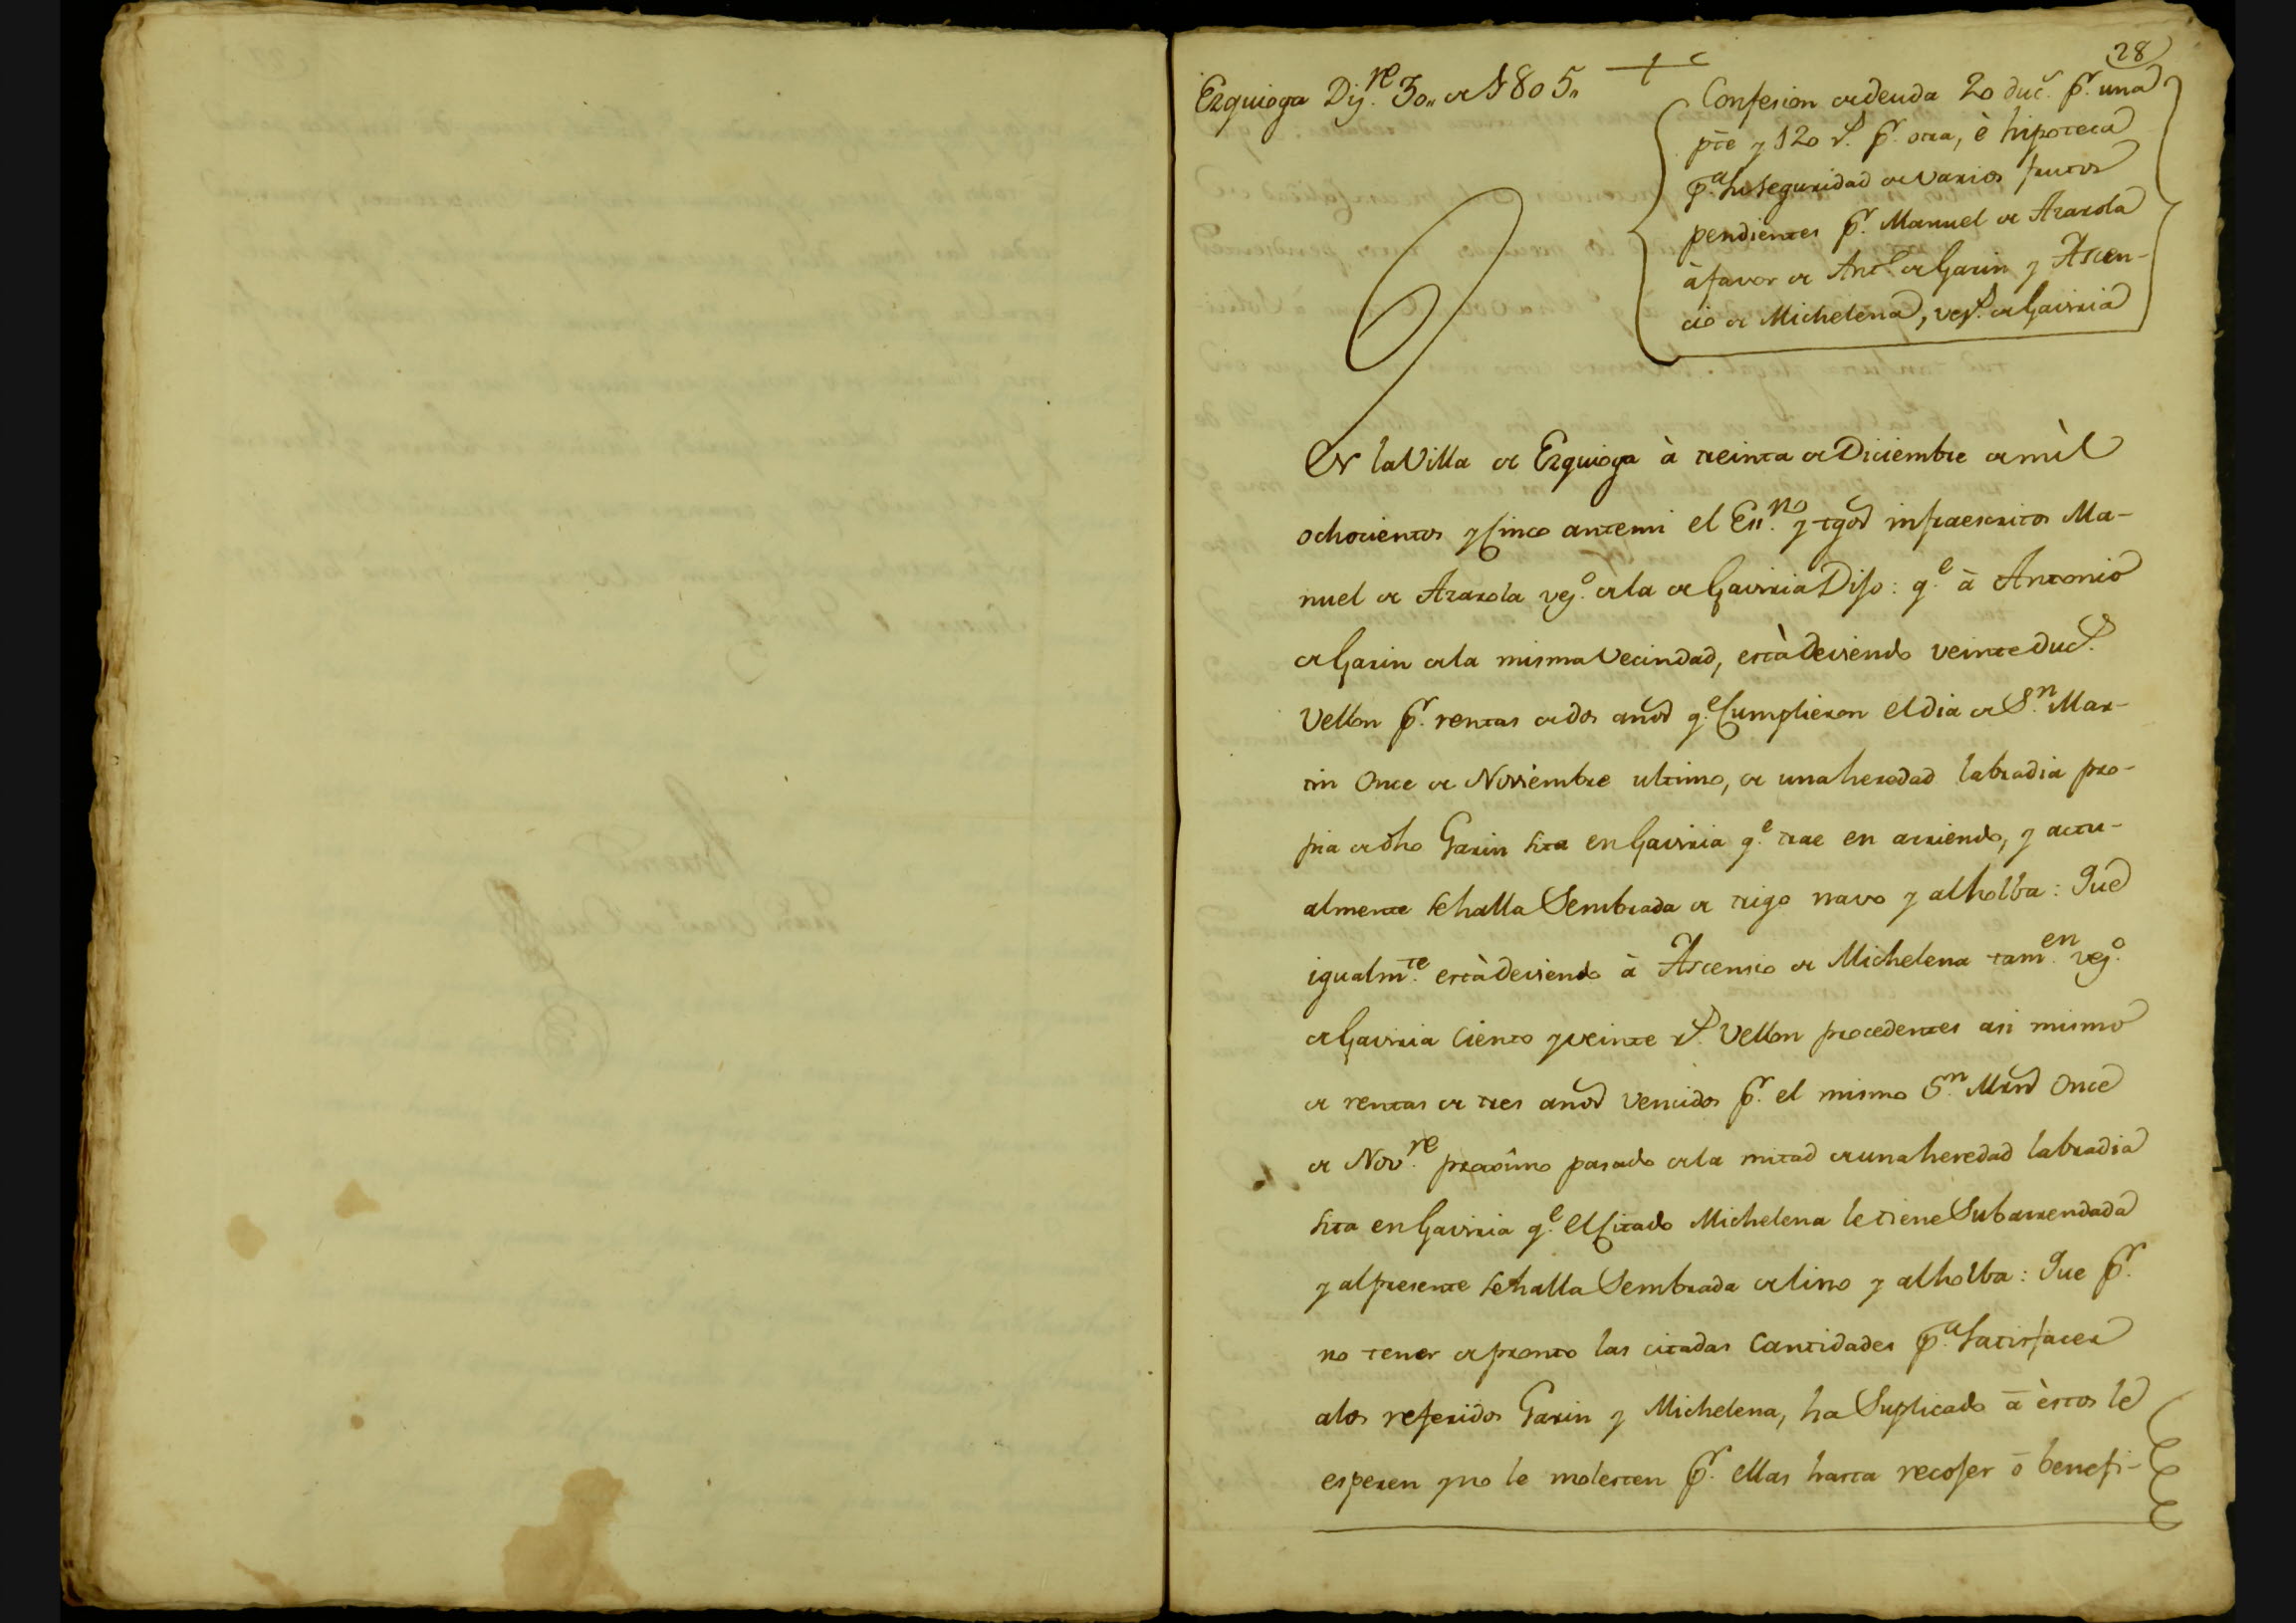 28
Ezquioga Diz.re 30,, de 1805,,
Confesion de deuda 20 duc.s p.r una
pte y 120 r.s p.r otra, è hipoteca
p.a su seguridad de varios frutos
pendientes p.r Manuel de Azarola
à favor de Ant.o de Garin y Ascen-
cio de Michelena, vez.s de Gaviria
En la Villa de Ezquioga à treinta de Diciembre de mil
ochocientos y Cinco ante mi el Es.no y tgos infraescritos Ma-
nuel de Azarola vez.o de la de Gaviria Dijo: q.e à Antonio
de Garin de la misma Vecindad, està deviendo veinte duc.s
Vellon p.r rentas de dos años q.e Cumplieron el dia de S.n Mar-
tin Once de Noviembre ultimo, de una heredad labradia pro-
pia de dho Garin sita en Gaviria q.e trae en arriendo, y actu-
almente se halla Sembrada de trigo navo y alholba: Que
igualm.te està deviendo à Ascensio de Michelena tam.en vez.o
de Gaviria Ciento y veinte r.s Vellon procedentes asi mismo
de rentas de tres años vencidos p.r el mismo S.n Mrn Once
de Nov.re proximo pasado de la mitad de una heredad labradia
sita en Gaviria q.e el Citado Michelena le tiene Subarrendada
y al presente se halla Sembrada de lino y alholba: Que p.r
no tener de pronto las citadas Cantidades p.a Satisfacer
a los referidos Garin y Michelena, ha Suplicado à èstos le
esperen y no le molesten p.r ellas hasta recojer ò benefi-